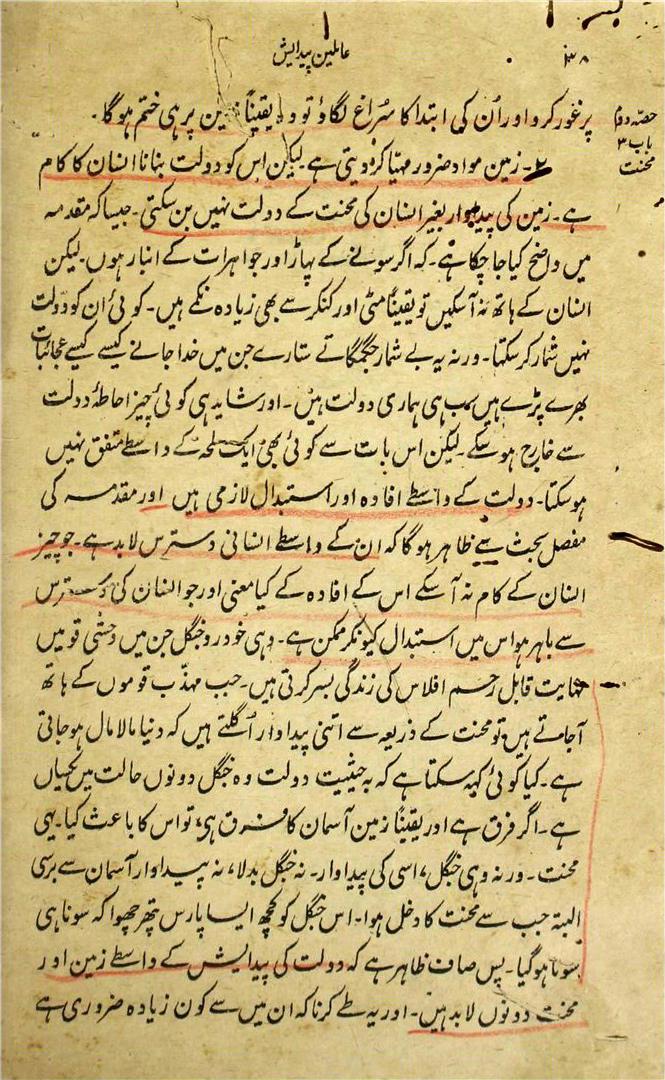 عاملین پیدایش
۱۳۸
حصہ دوم
باب ۳
محنت
پر غور کرو اور اُن کی ابتدا کا سُراغ لگاؤ تو وہ یقیناً زمین پر ہی ختم ہوگا۔
۲۔ زمین مواد ضرور مہیا کر دیتی ہے۔ لیکن اس کو دولت بنانا انسان کا کام
ہے۔ زمین کی پیداوار بغیر انسان کی محنت کے دولت نہیں بن سکتی۔ جیسا کہ مقدمہ
میں واضح کیا جا چکا ہے۔ کہ اگر سونے کے پہاڑ اور جواہرات کے انبار ہوں۔ لیکن
انسان کے ہاتھ نہ آسکیں تو یقیناً مٹی اور کنکر سے بھی زیادہ نکمے ہیں۔ کوئی اُن کو دولت
نہیں شمار کر سکتا۔ ورنہ یہ بے شمار جگمگاتے ستارے جن میں خدا جانے کیسے کیسے عجائبات
بھرے پڑے ہیں سب ہی ہماری دولت ہیں۔ اور شاید ہی کوئی چیز احاطۂ دولت
سے خارج ہوسکے۔ لیکن اس بات سے کوئی بھی ایک لمحہ کے واسطے متفق نہیں
ہوسکتا۔ دولت کے واسطے افادہ اور استبدال لازمی ہیں اور مقدمہ کی
مفصل بحث سے ظاہر ہوگا کہ ان کے واسطے انسانی دسترس لابد ہے۔ جو چیز
انسان کے کام نہ آسکے اس کے افادہ کے کیا معنی اور جو انسان کی دسترس
سے باہر ہو اس میں استبدال کیونکر ممکن ہے۔ وہی خودرو جنگل جن میں وحشی قومیں
نہایت قابل رحم افلاس کی زندگی بسر کرتی ہیں۔ جب مہذب قوموں کے ہاتھ
آجاتے ہیں تو محنت کے ذریعہ سے اتنی پیداوار اُگلتے ہیں کہ دنیا مالا مال ہوجاتی
ہے۔ کیا کوئی کہہ سکتا ہے کہ بہ حیثیت دولت وہ جنگل دونوں حالت میں یکساں
ہے۔ اگر فرق ہے اور یقیناً زمین آسمان کا فرق ہی، تو اس کا باعث کیا۔ یہی
محنت۔ ورنہ وہی جنگل، اسی کی پیداوار۔ نہ جنگل بدلا، نہ پیداوار آسمان سے برسی
البتہ جب سے محنت کا دخل ہوا۔ اس جنگل کو کچھ ایسا پارس پتھر چھوا کہ سونا ہی
سونا ہوگیا۔ پس صاف ظاہر ہے کہ دولت کی پیدایش کے واسطے زمین اور
محنت دونوں لابد ہیں۔ اور یہ طے کرنا کہ ان میں سے کون زیادہ ضروری ہے